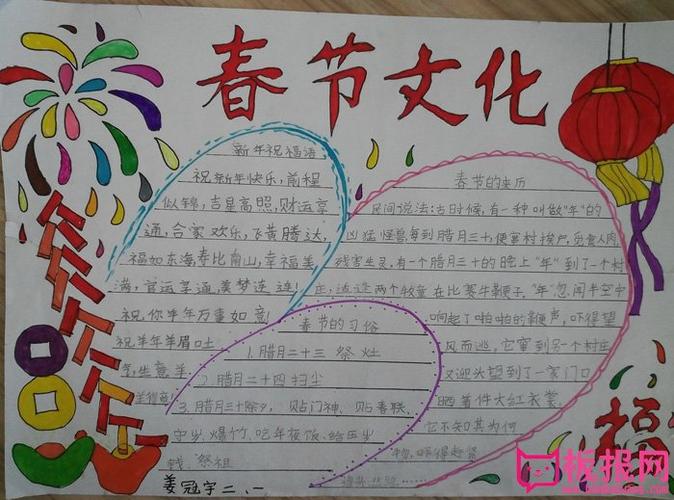 春节文化
新年祝福语:
祝新年快乐,前程
似锦,吉星高照,财运享
通,合家欢乐,飞黄腾达,
福如东海,寿比南山,幸福美
满,官运享通,美梦连连!
祝你羊年万事如意
祝羊年羊眉吐
气,生意羊
羊得意!
春节的来历
民间说法:古时候,有一种叫做"年"的
凶猛怪兽,每到腊月三十,便窜村挨户,觅食人肉,
残害生灵。有一个腊月三十的晚上"年"到了一个村
庄,适逢两个牧童在比赛牛鞭子。"年"忽闻半空中
响起了啪啪的鞭声,吓得望
风而逃。它窜到另一个村庄
又迎头望到了一家门口
晒着件大红衣裳
它不知其为何
物,吓得赶紧
春节的习俗
1.腊月二十三 祭灶
2.腊月二十四 扫尘
3.腊月三十除夕, 贴门神、贴春联、
守岁、爆竹、吃年夜饭、给压岁
钱、祭祖
姜冠宇 二、一
福
板报网